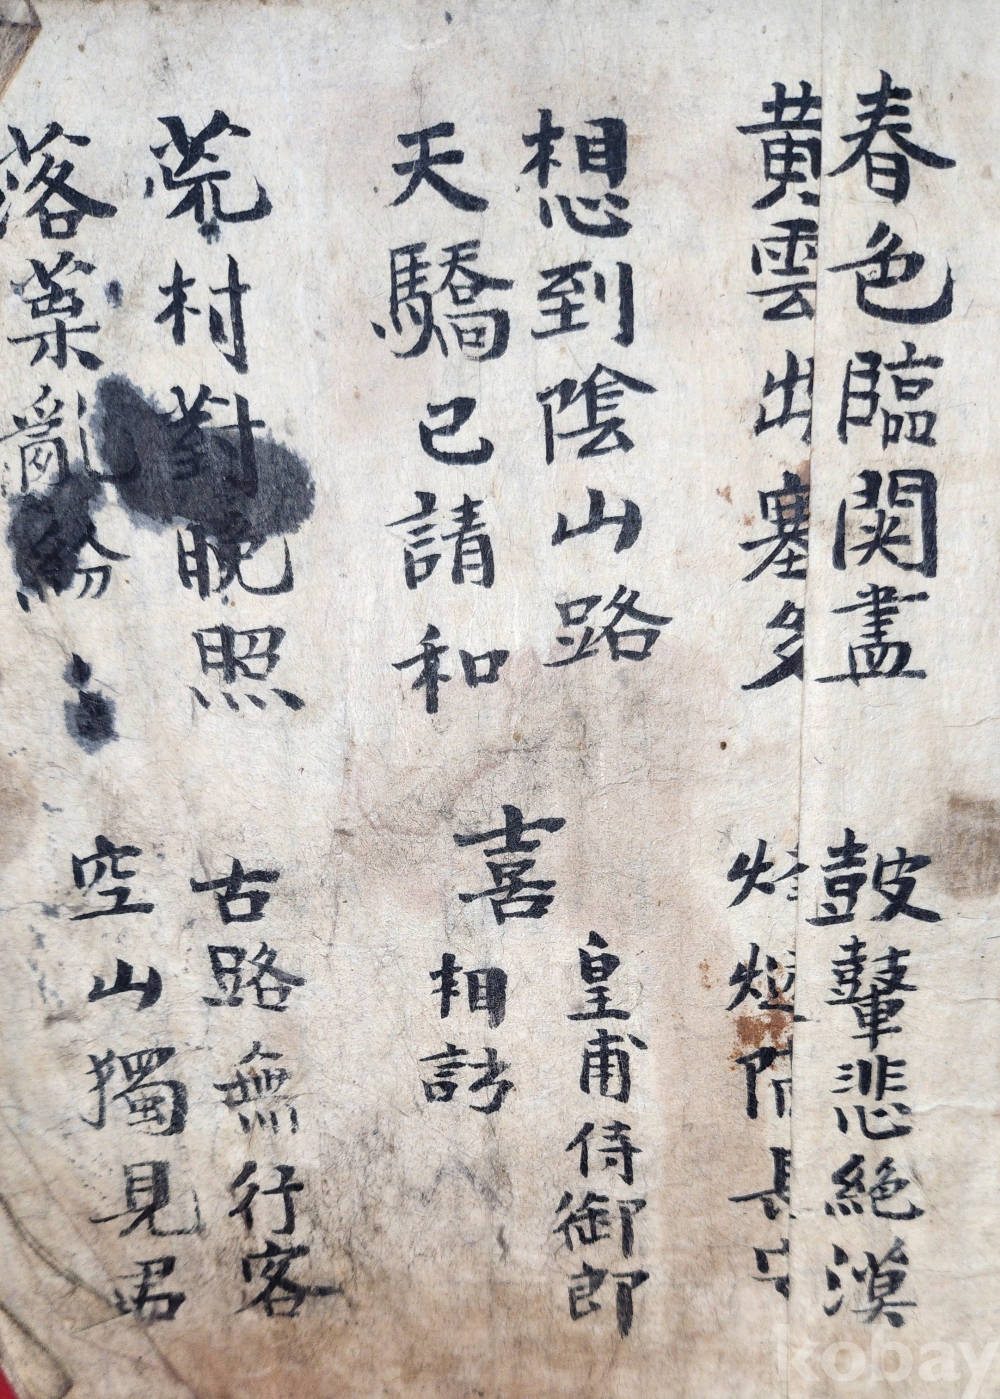 春色臨関盡
黄雲出塞多
鼓鼙悲絶漠
烽燧隔長
想到陰山路
天驕已請和
喜
皇甫侍御郎
相訪
荒村對晚照
落葉亂紛
古路無行客
空山獨見君
kobay